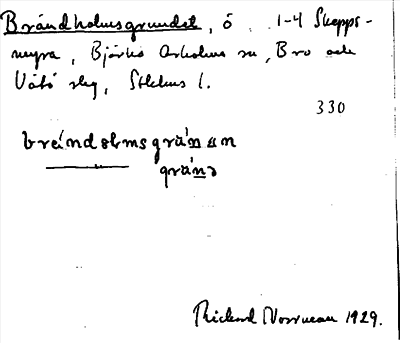 Brändholmsgrundet, ö . 1-4 Skepps-
myra, Björkö Arholma sn, Bro och
Vätö slg, Sthlms l.
330
breíndolmsgrúnan
grúnd
Rickard Norrman 1929.